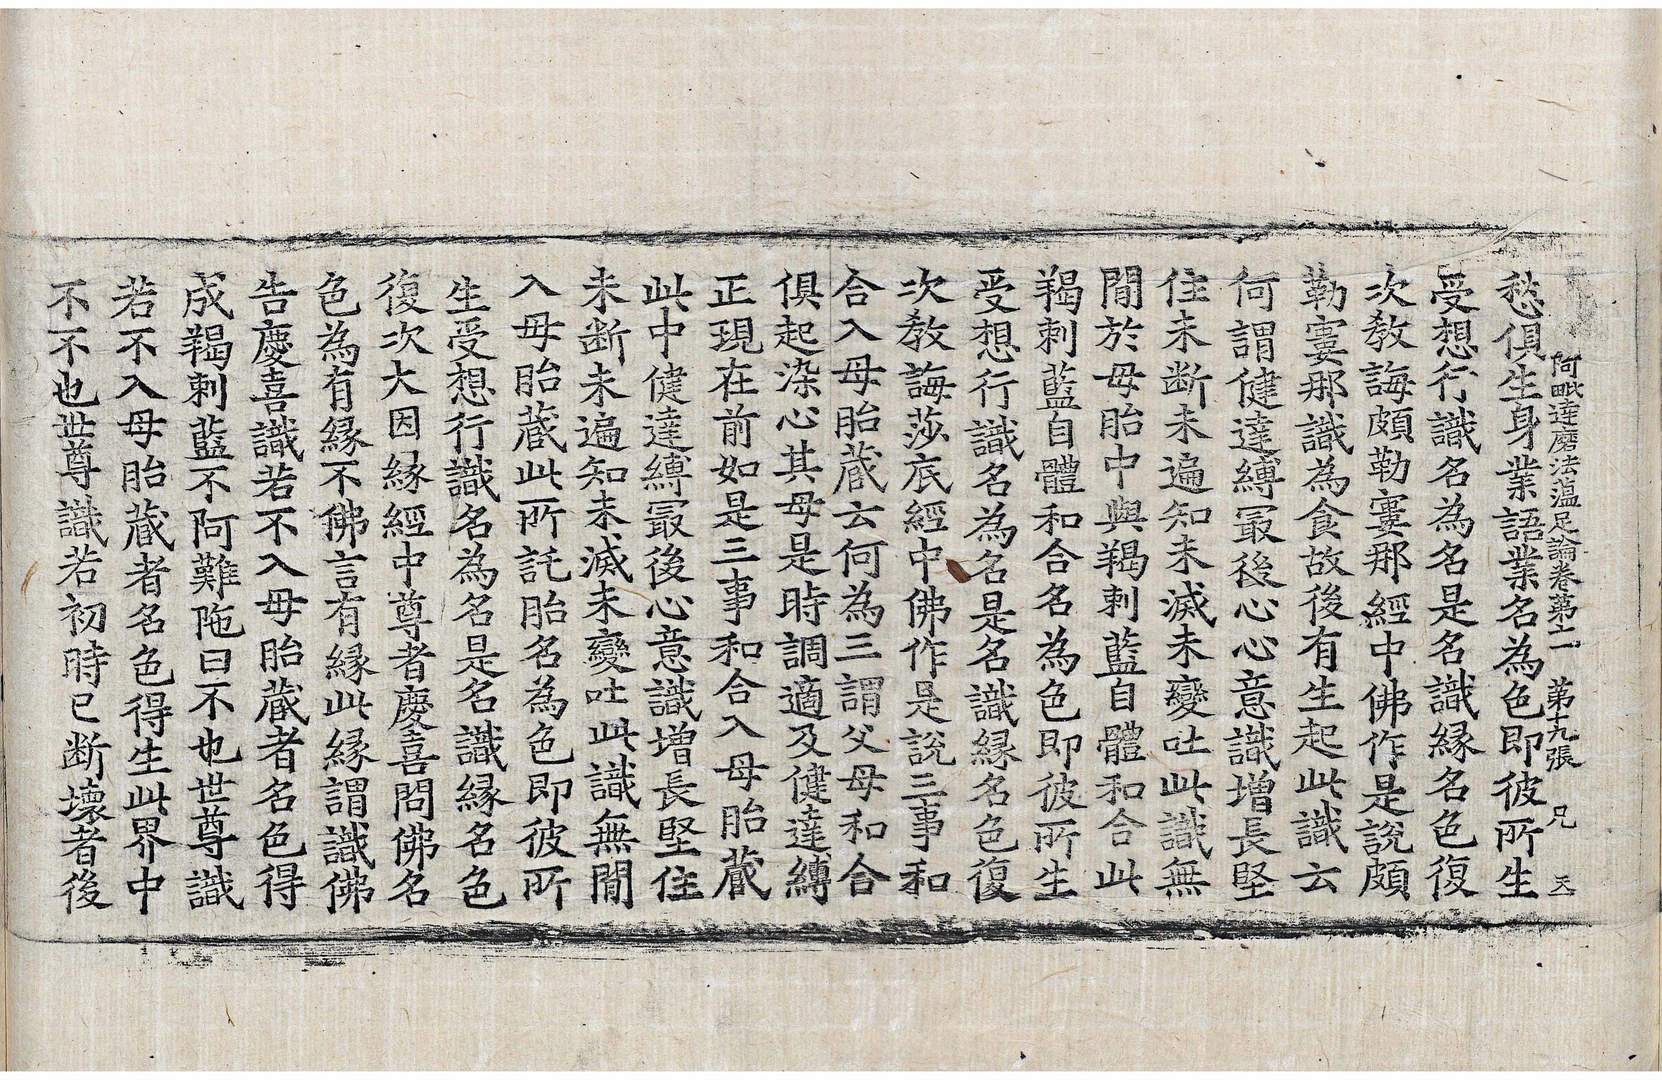 阿毗達磨法蘊足論卷第十二 第十九張 兄 天
愁俱生身業語業名為色即彼所生
受想行識名為名是名識緣名色復
次教誨頗勒窶那經中佛作是說頗
勒窶那識為食故後有生起此識云
何謂健達縛冣後心心意識增長堅
住未斷未遍知未滅未變吐此識無
閒於母胎中與羯刺藍自體和合此
羯刺藍自體和合名為色即彼所生
受想行識名為名是名識緣名色復
次教誨莎底經中佛作是說三事和
合入母胎藏云何為三謂父母和合
俱起染心其母是時調適及健達縛
正現在前如是三事和合入母胎藏
此中健達縛冣後心意識增長堅住
未斷未遍知未滅未變吐此識無閒
入母胎藏此所託胎名為色即彼所
生受想行識名為名是名識緣名色
復次大因緣經中尊者慶喜問佛名
色為有緣不佛言有緣此緣謂識佛
告慶喜識若不入母胎藏者名色得
成羯刺藍不阿難陁曰不也世尊識
若不入母胎藏者名色得生此界中
不不也世尊識若初時已斷壞者後